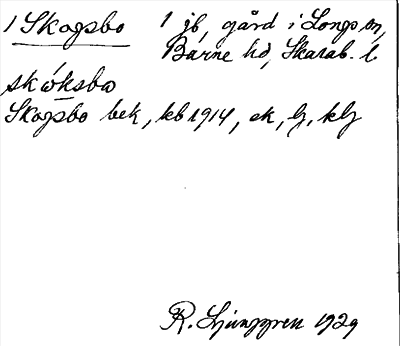 1 Skogsbo 1 jb, gård i Longs sn,
Barne hd, Skarab. l
skóksbo
Skogsbo bek, kb 1914, ek, lj, klj
R. Ljunggren 1929